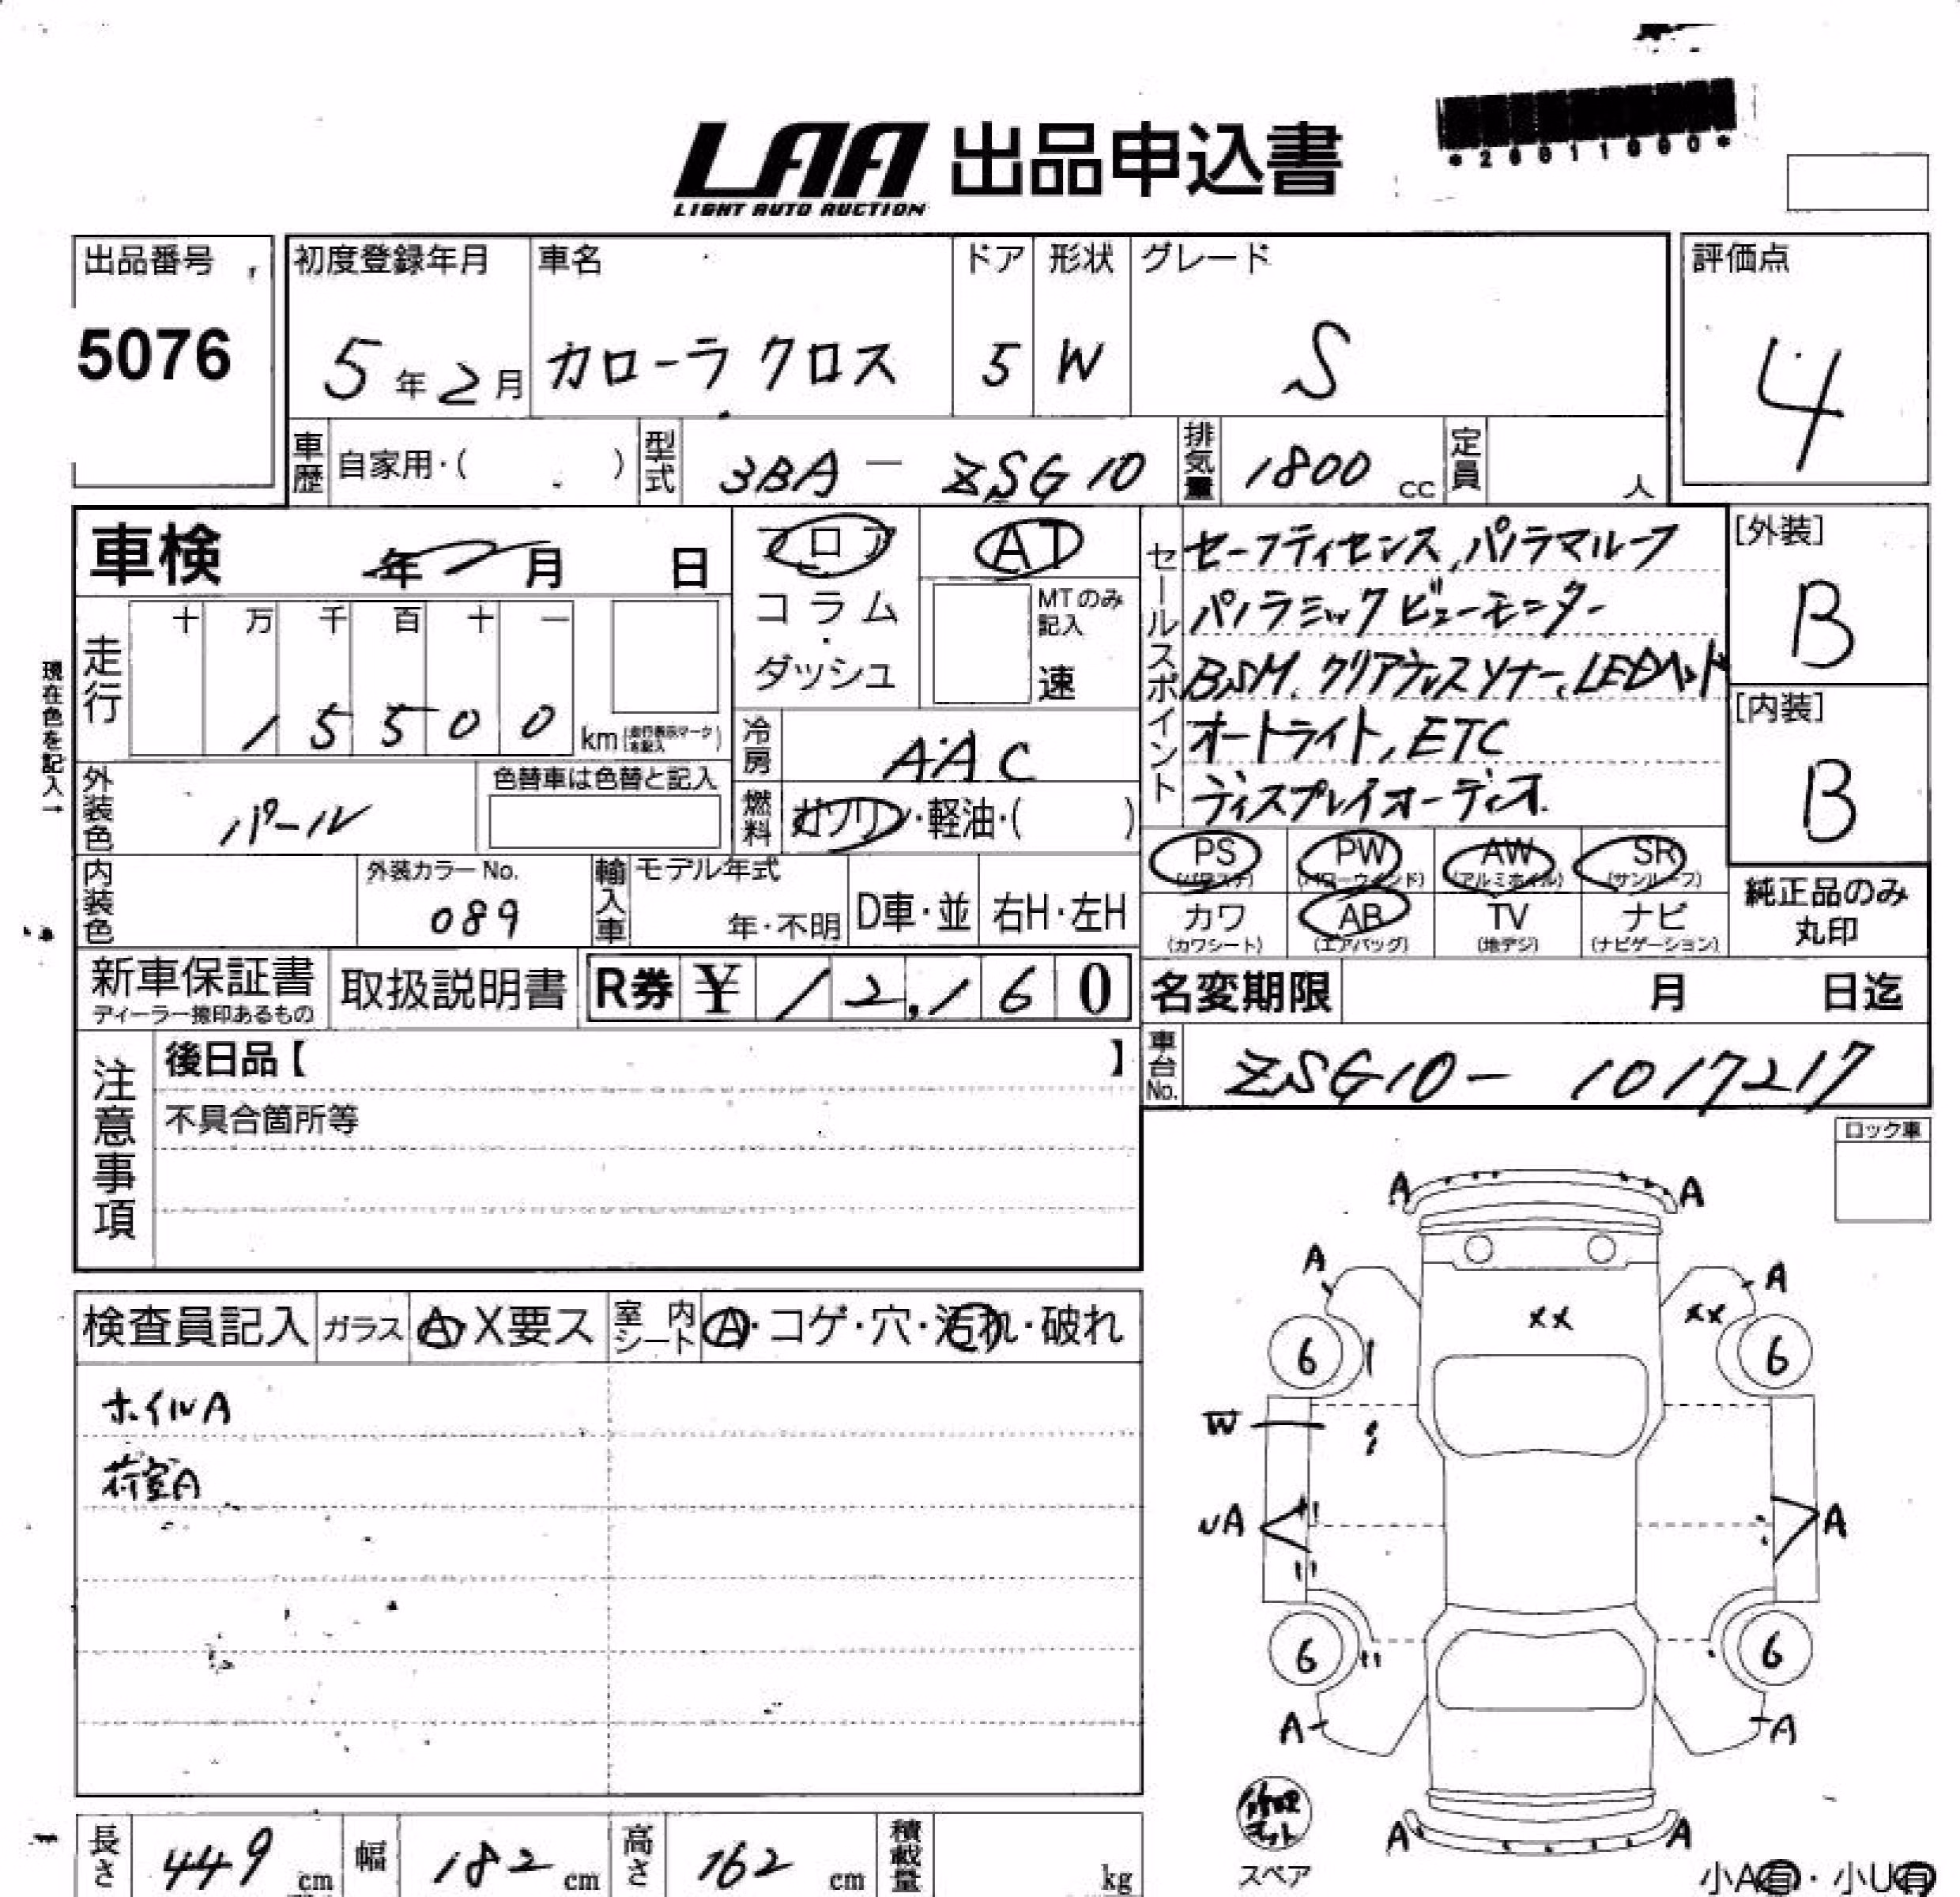 *26011000*
LAA 出品申込書
LIGHT AUTO AUCTION
出品番号
5076
初度登録年月
5年2月
車名
カローラ クロス
ドア
5
形状
W
グレード
S
評価点
4
車歴 自家用・( )
型式 3BA - ZSG10
排気量 1800 cc
定員 人
車検 年 月 日
フロア
コラム
・
ダッシュ
AT
MTのみ
記入
速
セールスポイント
セーフティセンス, パノラマルーフ
パノラミックビューモニター
BSM. クリアランスソナー, LEDヘッド
オートライト, ETC
ディスプレイオーディオ.
[外装]
B
[内装]
B
現在色を記入→
走行
十 万 千 百 十 一
1 5 5 0 0 km (走行表示マークを記入)
冷房 AAC
燃料 ガソリン・軽油・( )
外装色 パール
色替車は色替と記入
内装色
外装カラーNo.
089
輸入車
モデル年式
年・不明
D車・並
右H・左H
PS (パワステ)
PW (パワーウインド)
AW (アルミホイル)
SR (サンルーフ)
カワ (カワシート)
AB (エアバッグ)
TV (地デジ)
ナビ (ナビゲーション)
純正品のみ
丸印
新車保証書
ディーラー捺印あるもの
取扱説明書
R券 ¥12,160
名変期限 月 日迄
車台No. ZSG10- 1017217
注意事項
後日品【 】
不具合箇所等
ロック車
検査員記入 ガラス A・X要ス 室内シート A・コゲ・穴・汚れ・破れ
ホイルA
荷室A
A A
A A
XX XX
6 6
W
UA A
6 6
A A
A A
修理キット
スペア
小A有・小U有
長さ 449 cm
幅 182 cm
高さ 162 cm
積載量 kg